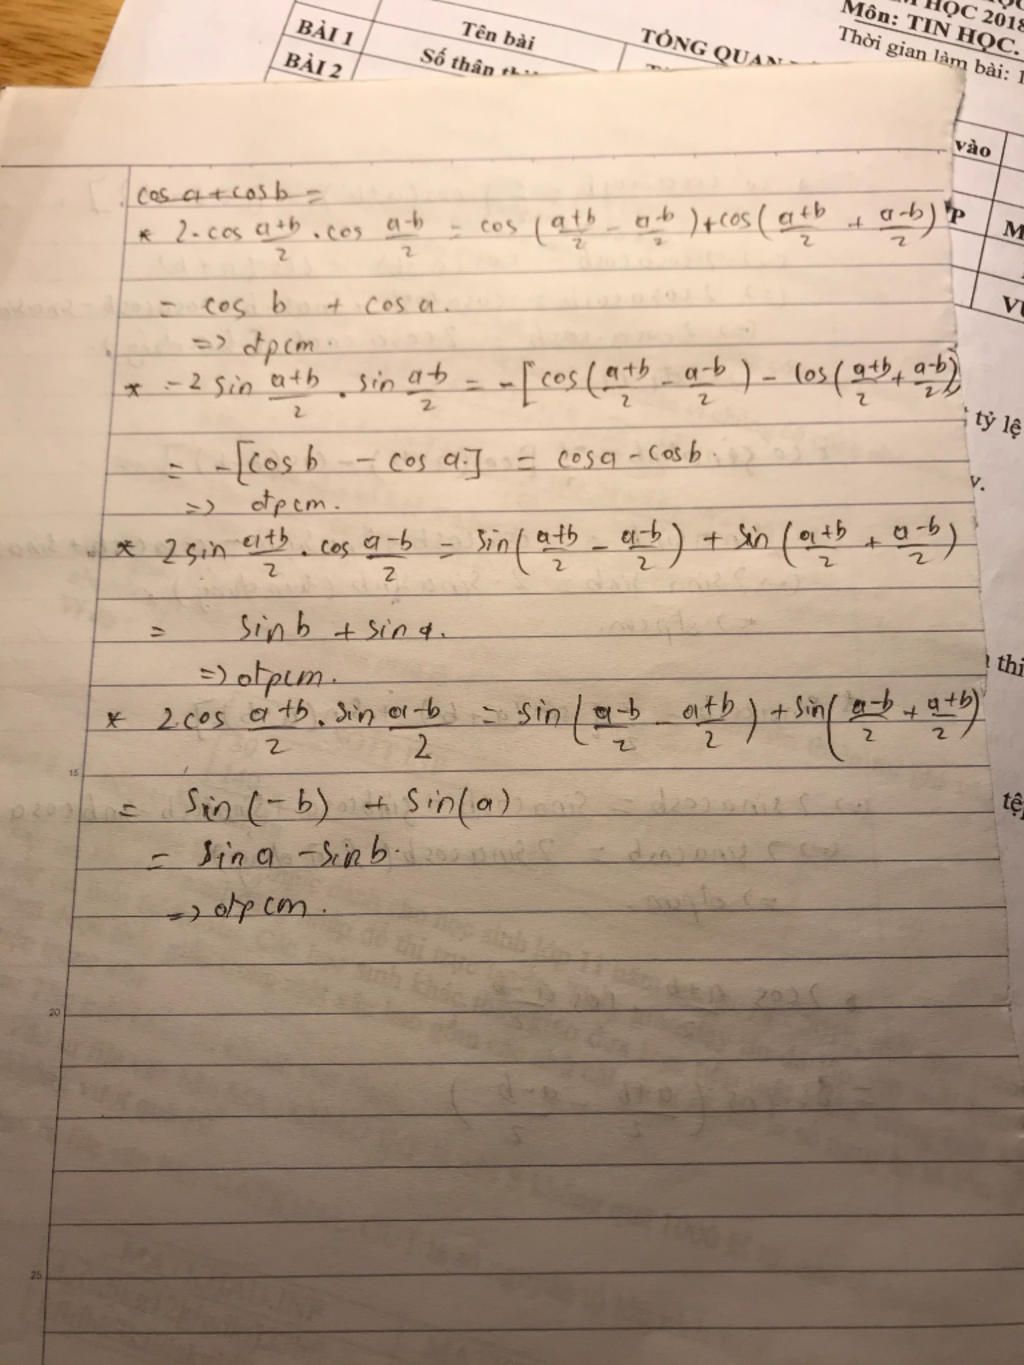 M HỌC 2018
Môn: TIN HỌC.
Thời gian làm bài: 1
BÀI 1 Tên bài TỔNG QUAN
BÀI 2 Số thân
vào
P M
VU
cos a + cos b =
* 2.cos (a+b)/2 . cos (a-b)/2 = cos ((a+b)/2 - (a-b)/2) + cos((a+b)/2 + (a-b)/2)
= cos b + cos a.
=> đpcm.
* -2 sin (a+b)/2 . sin (a-b)/2 = -[cos((a+b)/2 - (a-b)/2) - cos((a+b)/2 + (a-b)/2)]
= -[cos b - cos a.] = cosa - cosb.
=> đpcm.
* 2sin (a+b)/2 . cos (a-b)/2 = sin((a+b)/2 - (a-b)/2) + sin((a+b)/2 + (a-b)/2)
= sinb + sina.
=> đpcm.
* 2cos (a+b)/2 . sin (a-b)/2 = sin((a-b)/2 - (a+b)/2) + sin((a-b)/2 + (a+b)/2)
= sin(-b) + sin(a)
= sina - sinb.
=> đpcm.
tỷ lệ
v.
thi
15
20
25